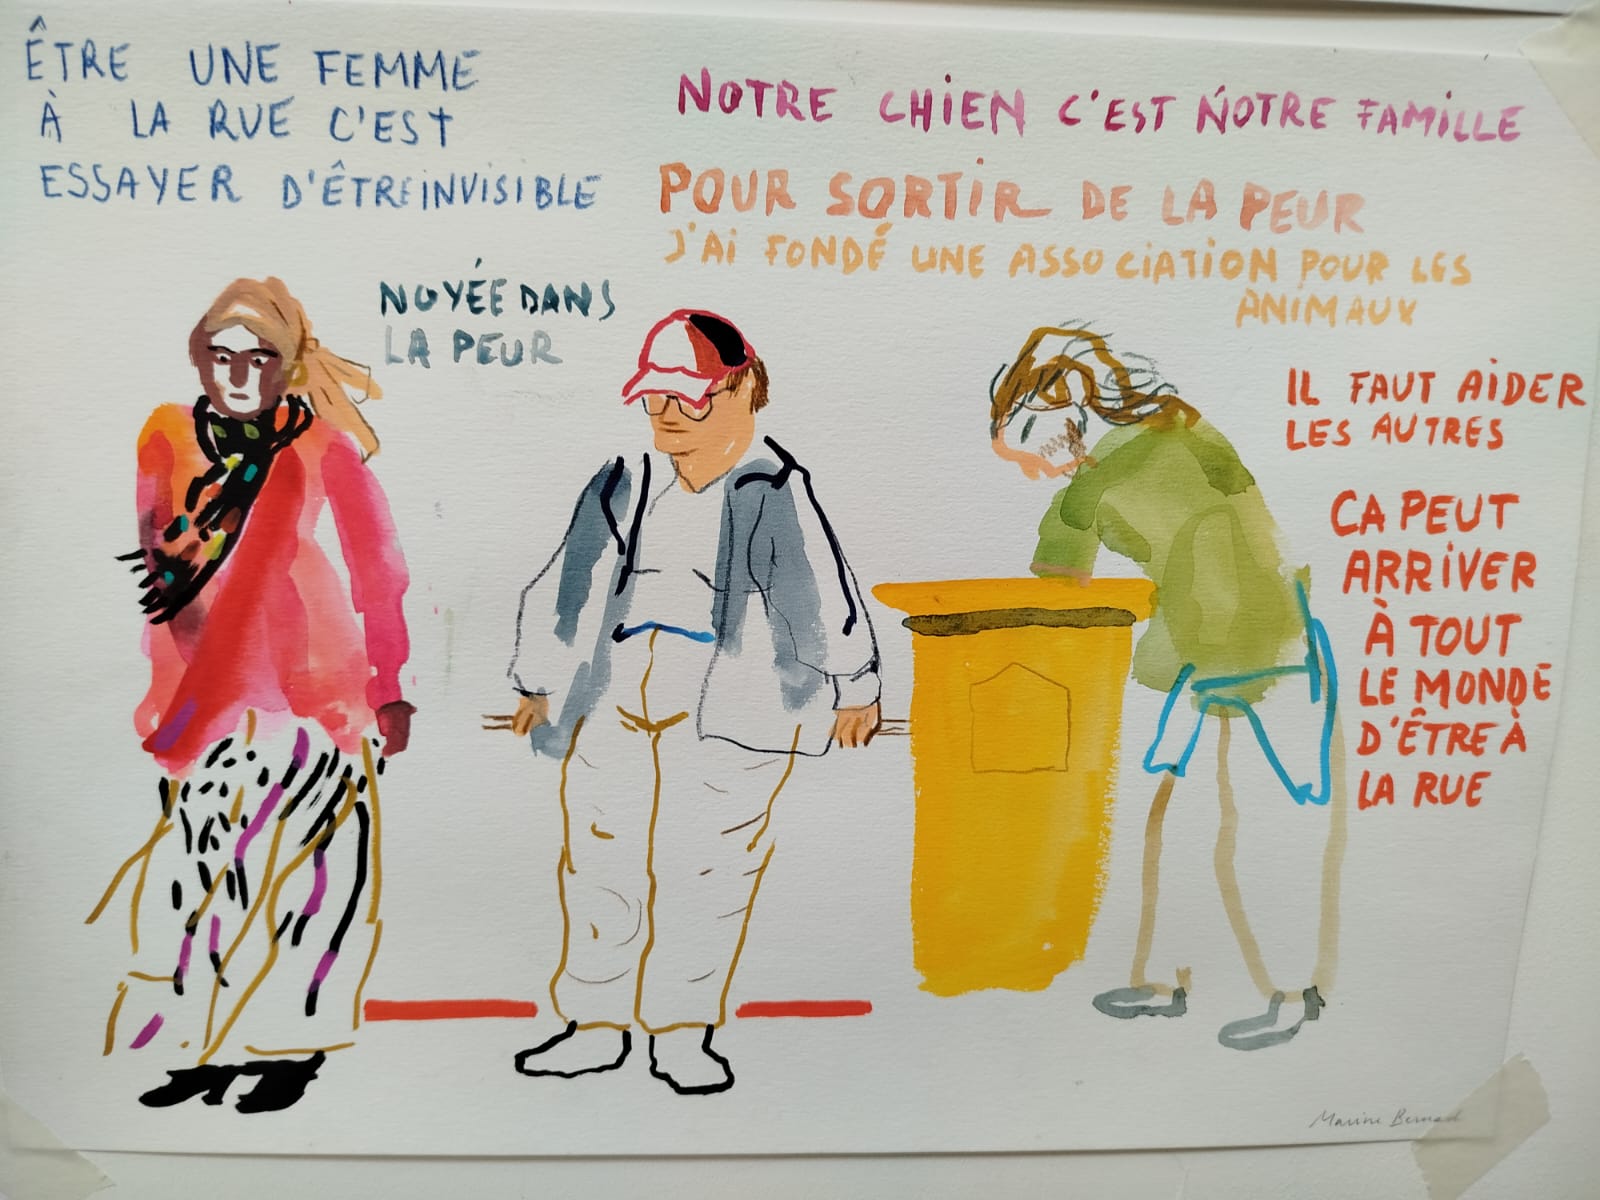 ÊTRE UNE FEMME
À LA RUE C'EST
ESSAYER D'ÊTRE INVISIBLE
NOYÉE DANS
LA PEUR
NOTRE CHIEN C'EST NOTRE FAMILLE
POUR SORTIR DE LA PEUR
J'AI FONDÉ UNE ASSOCIATION POUR LES
ANIMAUX
IL FAUT AIDER
LES AUTRES
CA PEUT
ARRIVER
À TOUT
LE MONDE
D'ÊTRE À
LA RUE
Marine